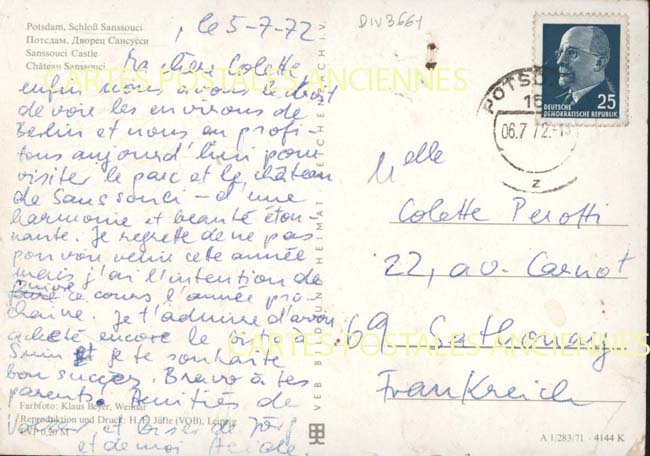 Potsdam, Schloß Sanssouci
Потсдам, Дворец Сансусси
Sanssouci Castle
Château Sanssouci
, le 5-7-72
Ma chère Colette
enfin nous avons le droit
de voir les environs de
Berlin et nous en profi-
tons aujourd'hui pour
visiter le parc et le château
de Sanssouci - d'une
harmonie et beauté éton-
nante. Je regrette de ne pas
pouvoir venir cette année
mais j'ai l'intention de
suivre ce cours l'année pro-
chaine. Je t'admire d'avoir
acheté encore le
et je te souhaite
bon succès. Bravo à tes
parents. Amitiés de
et baiser de Jörg
et de moi
Farbfoto: Klaus Beyer, Weimar
Reproduktion und Druck: H. F. Jütte (VOB), Leipzig
EVP 0,20 M
VEB BILD UND HEIMAT REICHENBACH I. V.
DIV3661
POTSDAM
15
06.7.72.-1
z
25
DEUTSCHE
DEMOKRATISCHE REPUBLIK
Melle
Colette Perotti
22, av. Carnot
69 - Sathonay
Frankreich
A 1/283/71 · 4144 K
CARTES POSTALES ANCIENNES
CARTES POSTALES ANCIENNES